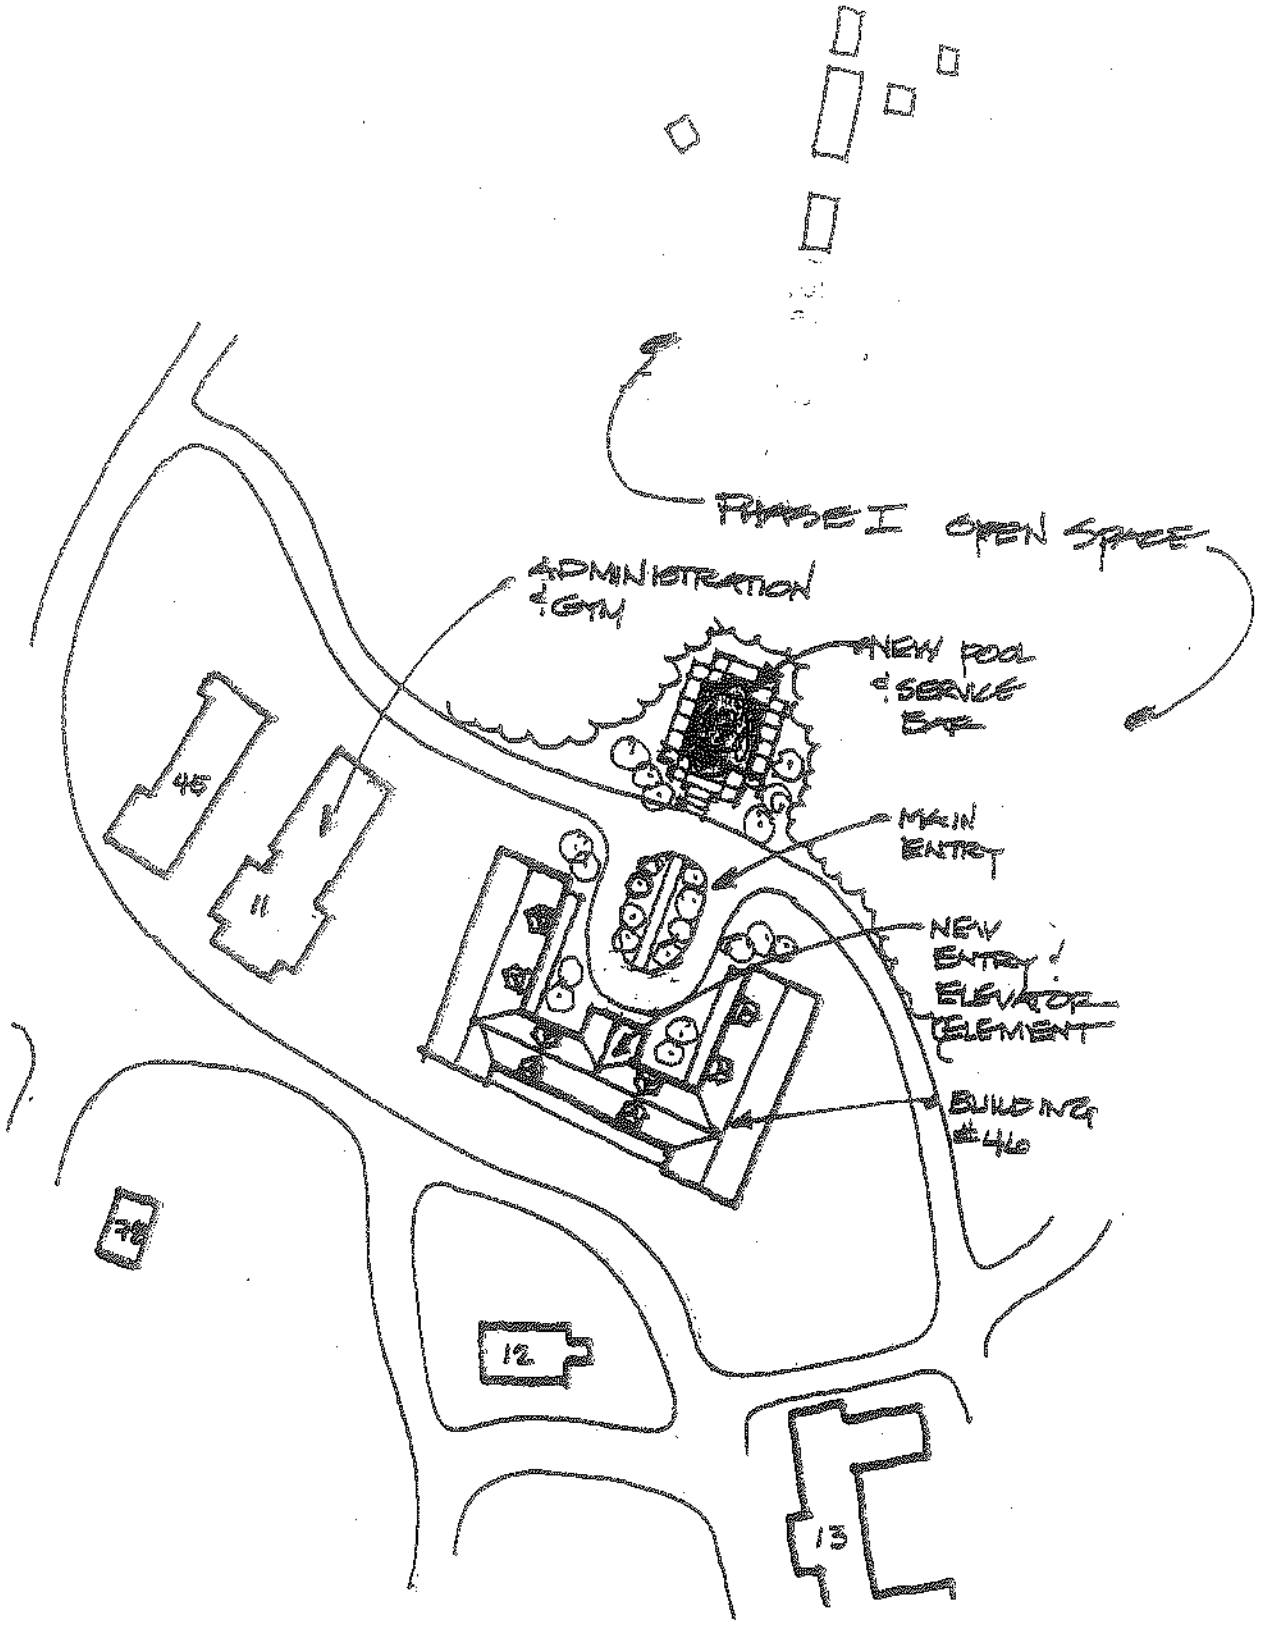 PHASE I OPEN SPACE
ADMINISTRATION
& GYM
NEW POOL
& SERVICE
BAR
MAIN
ENTRY
NEW
ENTRY &
ELEVATOR
ELEMENT
BUILDING
#46
45
11
78
12
13